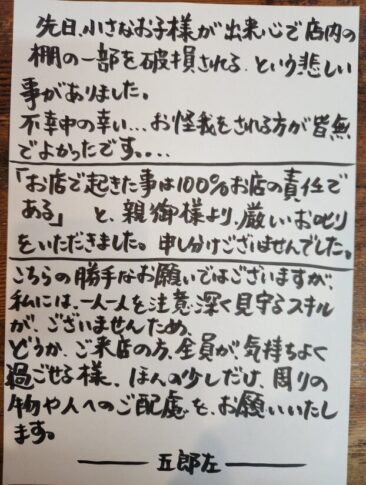 先日、小さなお子様が出来心で店内の
棚の一部を破損される、という悲しい
事がありました。
不幸中の幸い…お怪我をされる方が皆無
でよかったです。...
「お店で起きた事は100%お店の責任で
ある」と、親御様より、厳しいお叱り
をいただきました。申し分けございませんでした。
こちらの勝手なお願いではございますが、
私には、一人一人を注意深く見守るスキル
が、ございませんため、
どうか、ご来店の方、全員が、気持ちよく
過ごせる様、ほんの少しだけ、周りの
物や人へのご配慮を、お願いいたし
ます。
五郎左